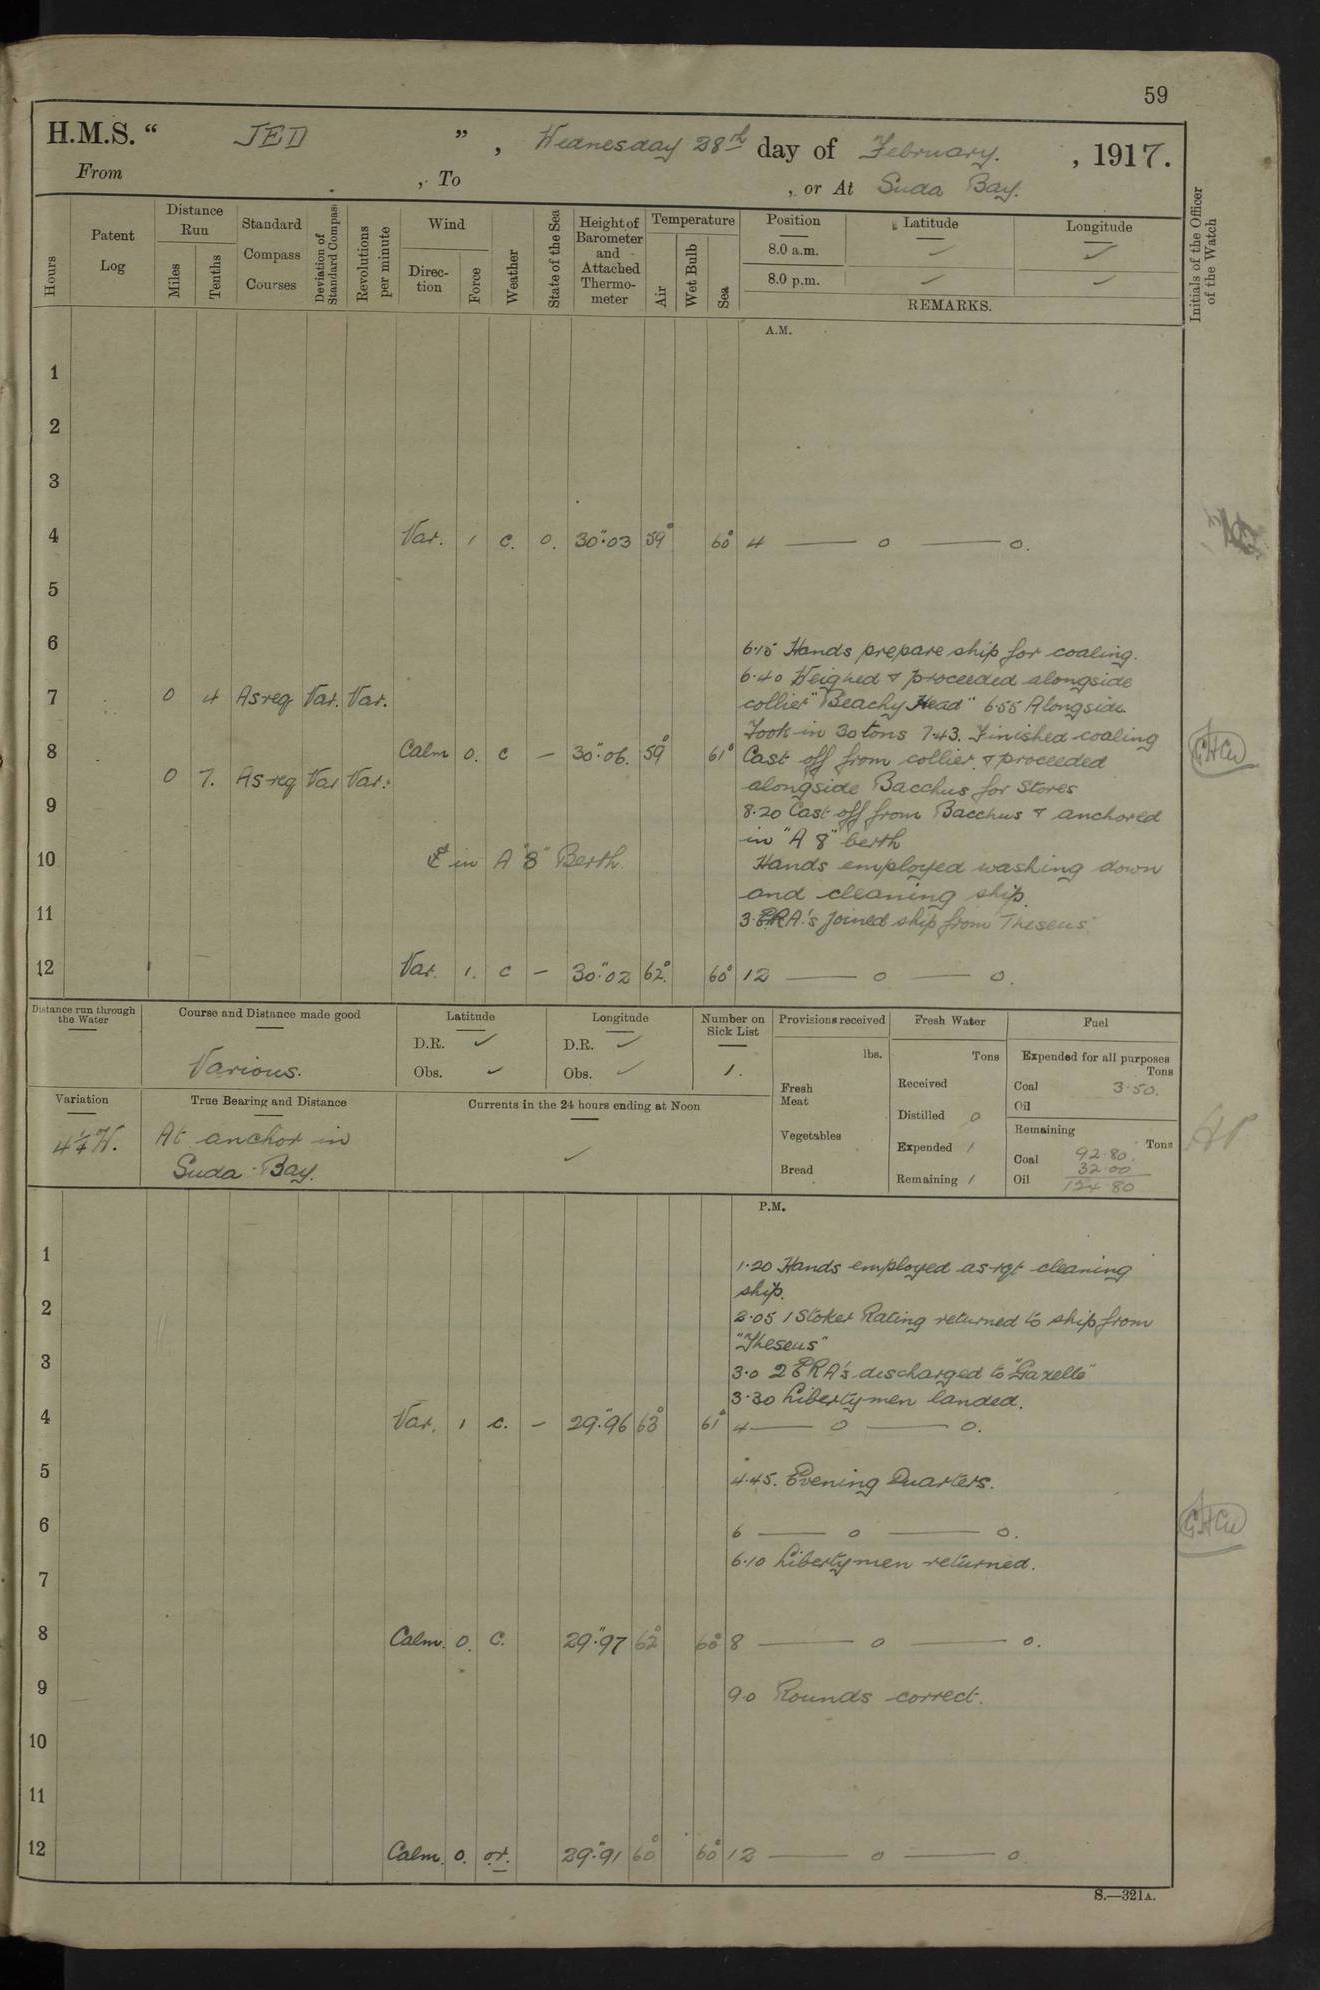 59
H.M.S. “ JED ”, Wednesday 28th day of February. , 1917.
From , To , or At Suda Bay.
Hours
Patent Log
Distance Run
Miles
Tenths
Standard Compass Courses
Deviation of Standard Compass
Revolutions per minute
Wind
Direction
Force
Weather
State of the Sea
Height of Barometer and Attached Thermometer
Temperature
Air
Wet Bulb
Sea
Position
Latitude
Longitude
8.0 a.m. ✓ ✓
8.0 p.m. ✓ ✓
REMARKS.
Initials of the Officer of the Watch
A.M.
1
2
3
4 Var. 1 c. 0. 30".03 59° 60° 4 — o — o.
5
6
6.15 Hands prepare ship for coaling.
6.40 Weighed & proceeded alongside
7 0 4 As req Var. Var. collier "Beachy Head" 6.55 Alongside
Took in 30 tons 7.43. Finished coaling
8 Calm 0. c — 30".06. 59° 61° Cast off from collier & proceeded
0 7. As req Var Var. alongside Bacchus for stores
9 8.20 Cast off from Bacchus & anchored
in "A 8" berth
10 in A "8" Berth. Hands employed washing down
and cleaning ship.
11 3. ERA's joined ship from Theseus
12 Var. 1. c — 30".02 62°. 60° 12 — o — o.
Distance run through the Water
Course and Distance made good
Various.
Latitude
D.R. ✓
Obs. ✓
Longitude
D.R. ✓
Obs. ✓
Number on Sick List
1.
Provisions received
lbs.
Fresh Meat
Vegetables
Bread
Fresh Water
Tons
Received
Distilled 0
Expended 1
Remaining 1
Fuel
Expended for all purposes
Tons
Coal 3.50.
Oil
Remaining
Tons
Coal 92.80.
32.00
Oil 124.80
Variation
4¼ W.
True Bearing and Distance
At anchor in
Suda Bay.
Currents in the 24 hours ending at Noon
✓
P.M.
1
1.20 Hands employed as rqt cleaning
ship.
2 2.05 1 Stoker Rating returned to ship from
"Theseus"
3 3.0 2 ERA's discharged to "Gazelle"
3.30 Libertymen landed.
4 Var. 1 c. — 29".96 63° 61° 4 — o — o.
5 4.45. Evening Quarters.
6 6 — o — o.
6.10 Libertymen returned.
7
8 Calm. 0. c. 29".97 62° 60° 8 — o — o.
9 9.0 Rounds correct.
10
11
12 Calm. 0. or. 29".91 60° 60° 12 — o — o
S.—321A.